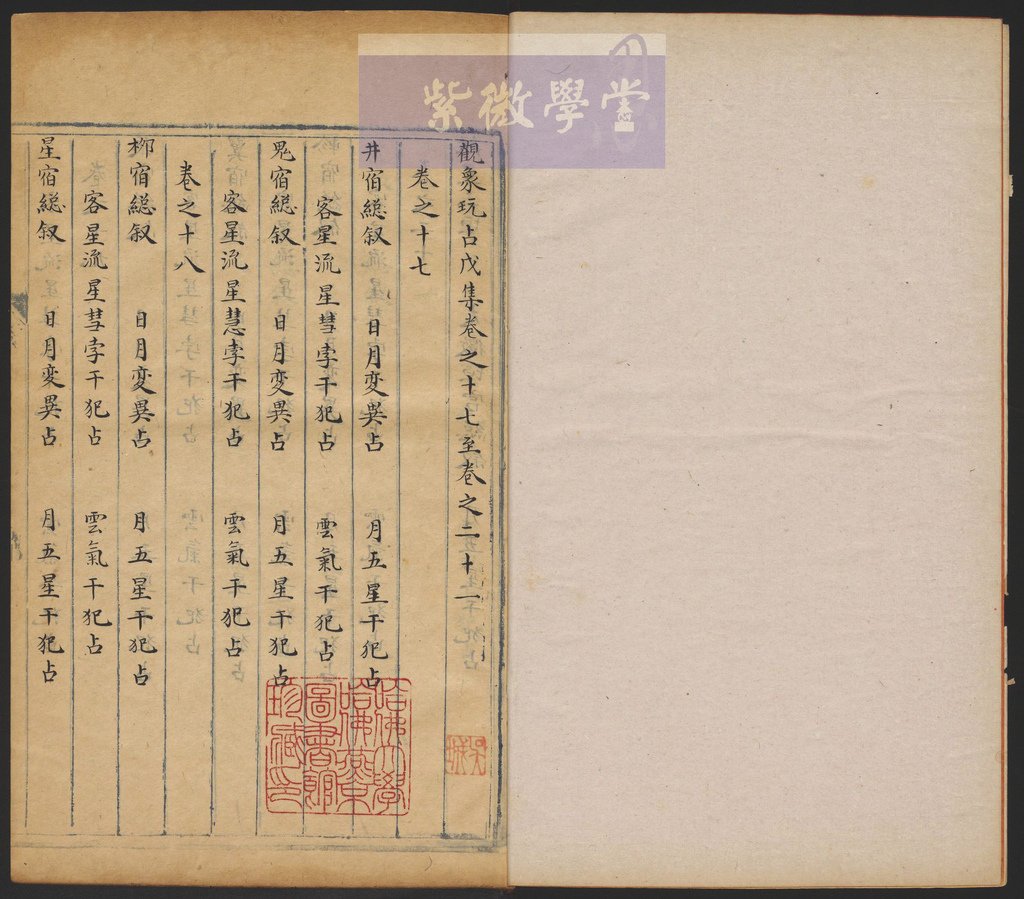 紫微學堂
觀象玩占戊集卷之十七至卷之二十一
卷之十七
井宿総叙 日月变異占 月五星干犯占
客星流星彗孛干犯占 雲氣干犯占
鬼宿総叙 日月变異占 月五星干犯占
客星流星慧孛干犯占 雲氣干犯占
卷之十八
柳宿総叙 日月変異占 月五星干犯占
客星流星彗孛干犯占 雲氣干犯占
星宿総叙 日月変異占 月五星干犯占
哈佛大學
哈佛燕京
圖書館
珍藏印